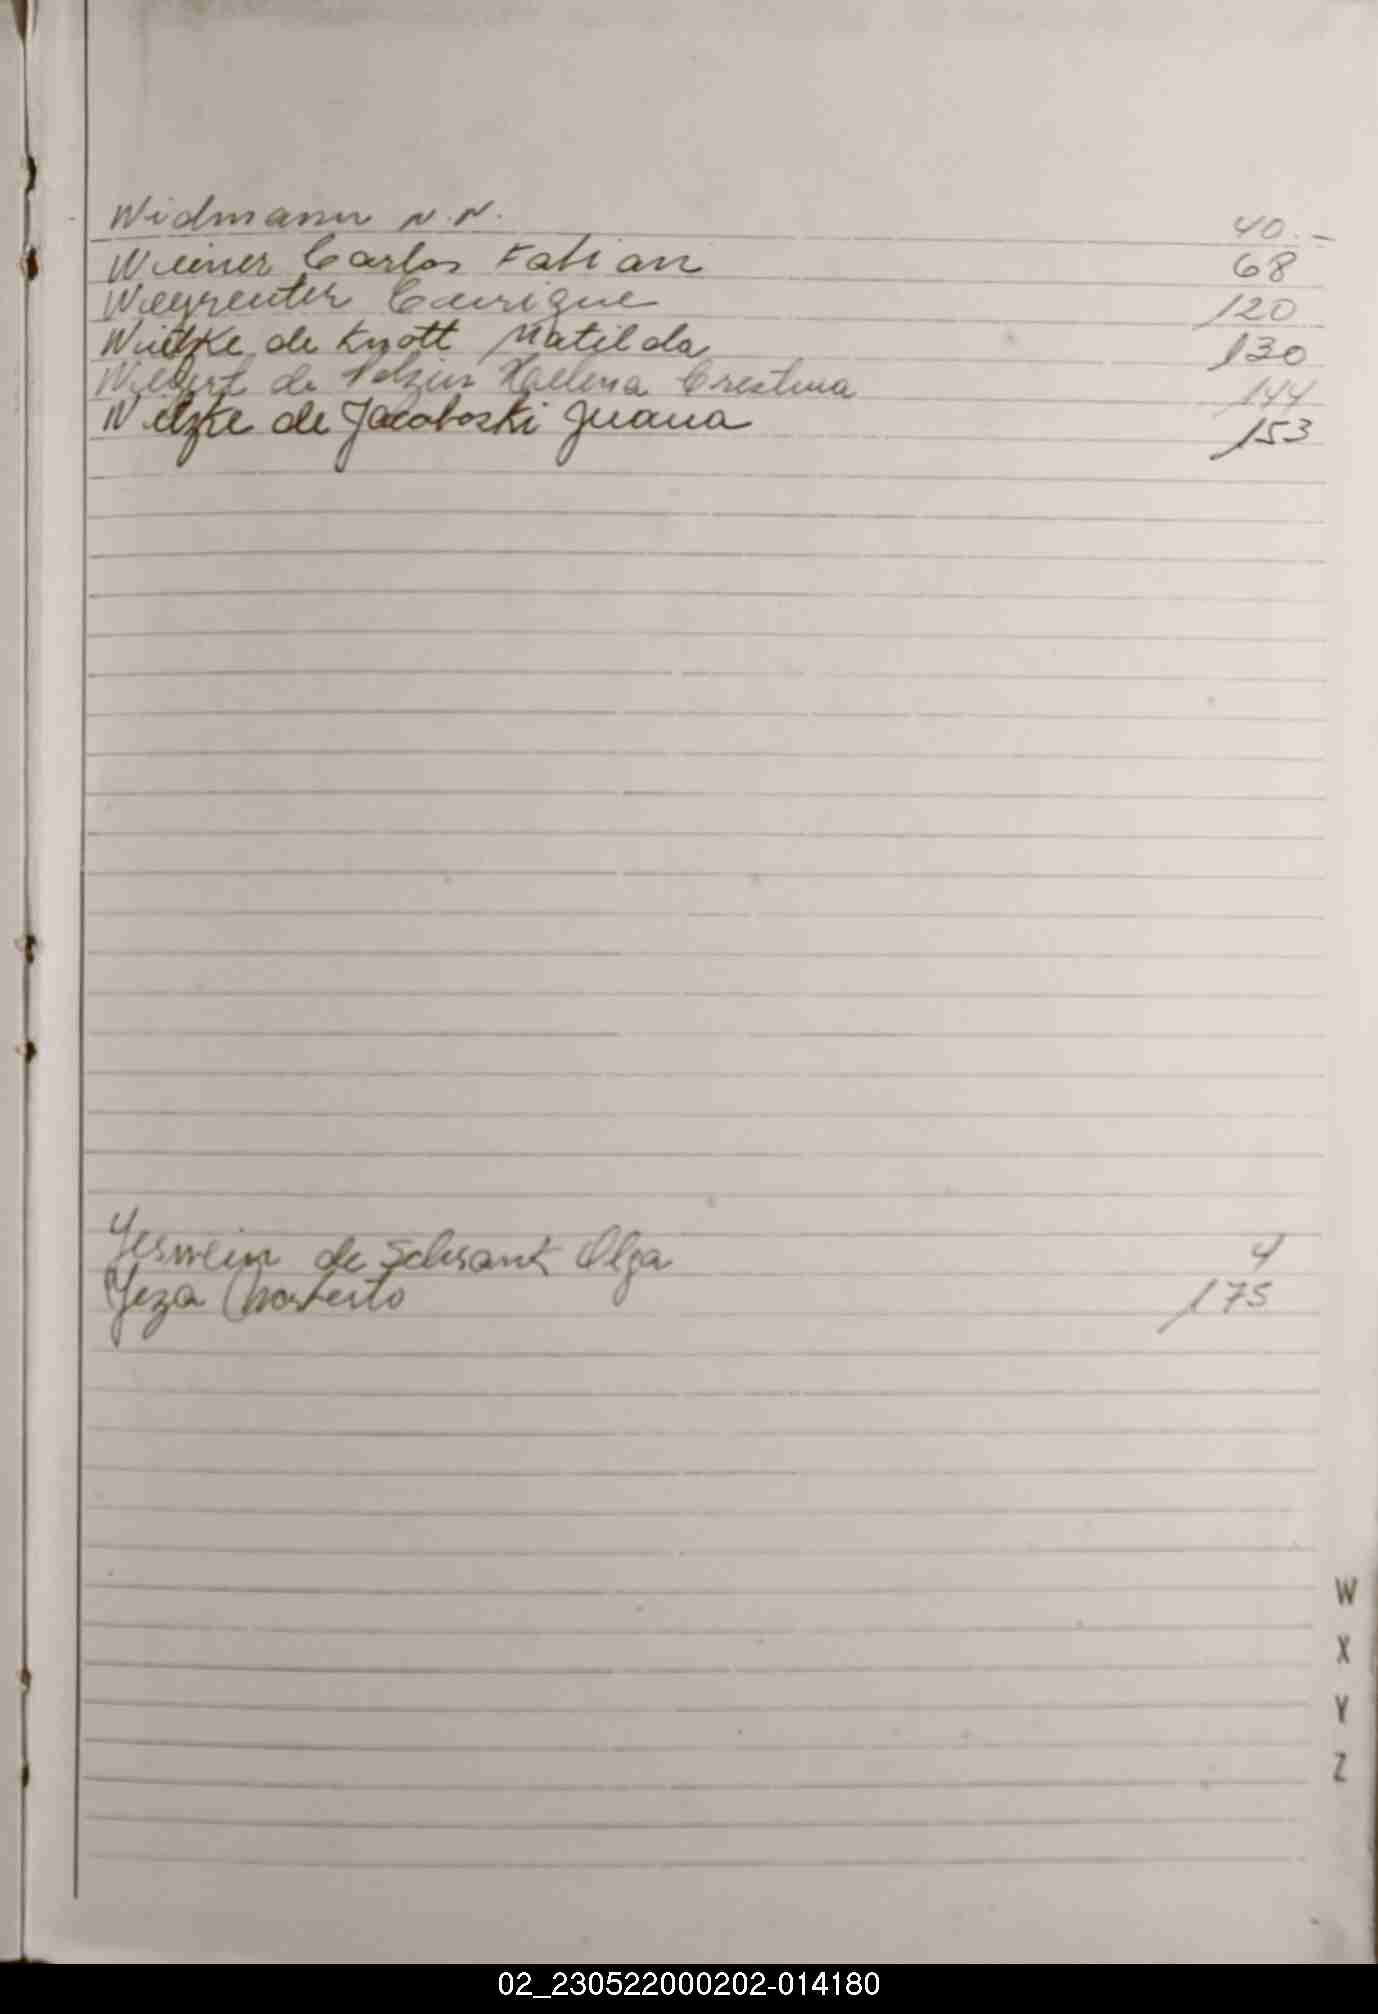 Widmann N.N. 40.-
Weiner Carlos Fabian 68
Weyreuter Enrique 120
Wietzke de Knott Matilda 130
de Hellena Crestina 144
Wetzke de Jacoboski Juana 153
de Schrank Olga 4
Yeza Norberto 175
W
X
Y
Z
02_230522000202-014180